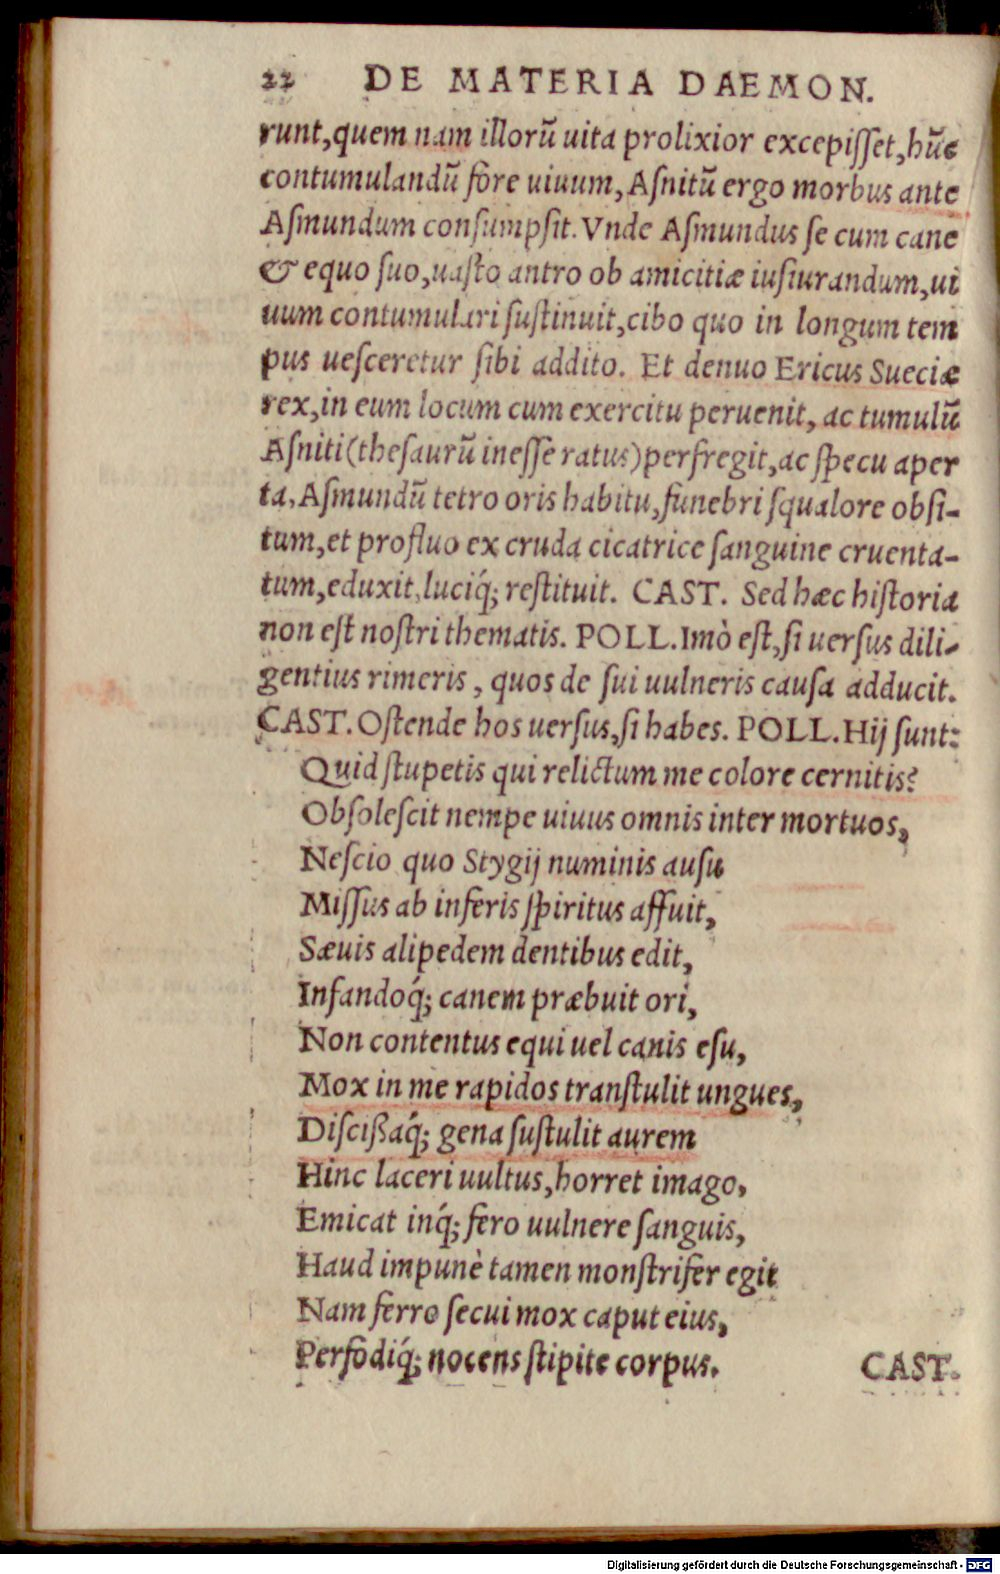 22 DE MATERIA DAEMON.
runt, quem nam illorũ uita prolixior excepiſſet, hũc
contumulandũ fore uiuum, Aſnitũ ergo morbus ante
Aſmundum conſumpſit. Vnde Aſmundus ſe cum cane
& equo ſuo, uaſto antro ob amicitiæ iuſiurandum, ui
uum contumulari ſuſtinuit, cibo quo in longum tem
pus ueſceretur ſibi addito. Et denuo Ericus Sueciæ
rex, in eum locum cum exercitu peruenit, ac tumulũ
Aſniti (theſaurũ ineſſe ratus) perfregit, ac ſpecu aper
ta, Aſmundũ tetro oris habitu, funebri ſqualore obſi-
tum, et profluo ex cruda cicatrice ſanguine cruenta-
tum, eduxit, luciq́; reſtituit. CAST. Sed hæc hiſtoria
non eſt noſtri thematis. POLL. Imò eſt, ſi uerſus dili-
gentius rimeris, quos de ſui uulneris cauſa adducit.
CAST. Oſtende hos uerſus, ſi habes. POLL. Hij ſunt:
Quid ſtupetis qui relictum me colore cernitis?
Obſoleſcit nempe uiuus omnis inter mortuos,
Neſcio quo Stygij numinis auſu
Miſſus ab inferis ſpiritus affuit,
Sæuis alipedem dentibus edit,
Infandoq́; canem præbuit ori,
Non contentus equi uel canis eſu,
Mox in me rapidos tranſtulit ungues,
Diſcißaq́; gena ſuſtulit aurem
Hinc laceri uultus, horret imago,
Emicat inq́; fero uulnere ſanguis,
Haud impunè tamen monſtrifer egit
Nam ferro ſecui mox caput eius,
Perfodiq́; nocens ſtipite corpus.
CAST.
Digitalisierung gefördert durch die Deutsche Forschungsgemeinschaft - DFG